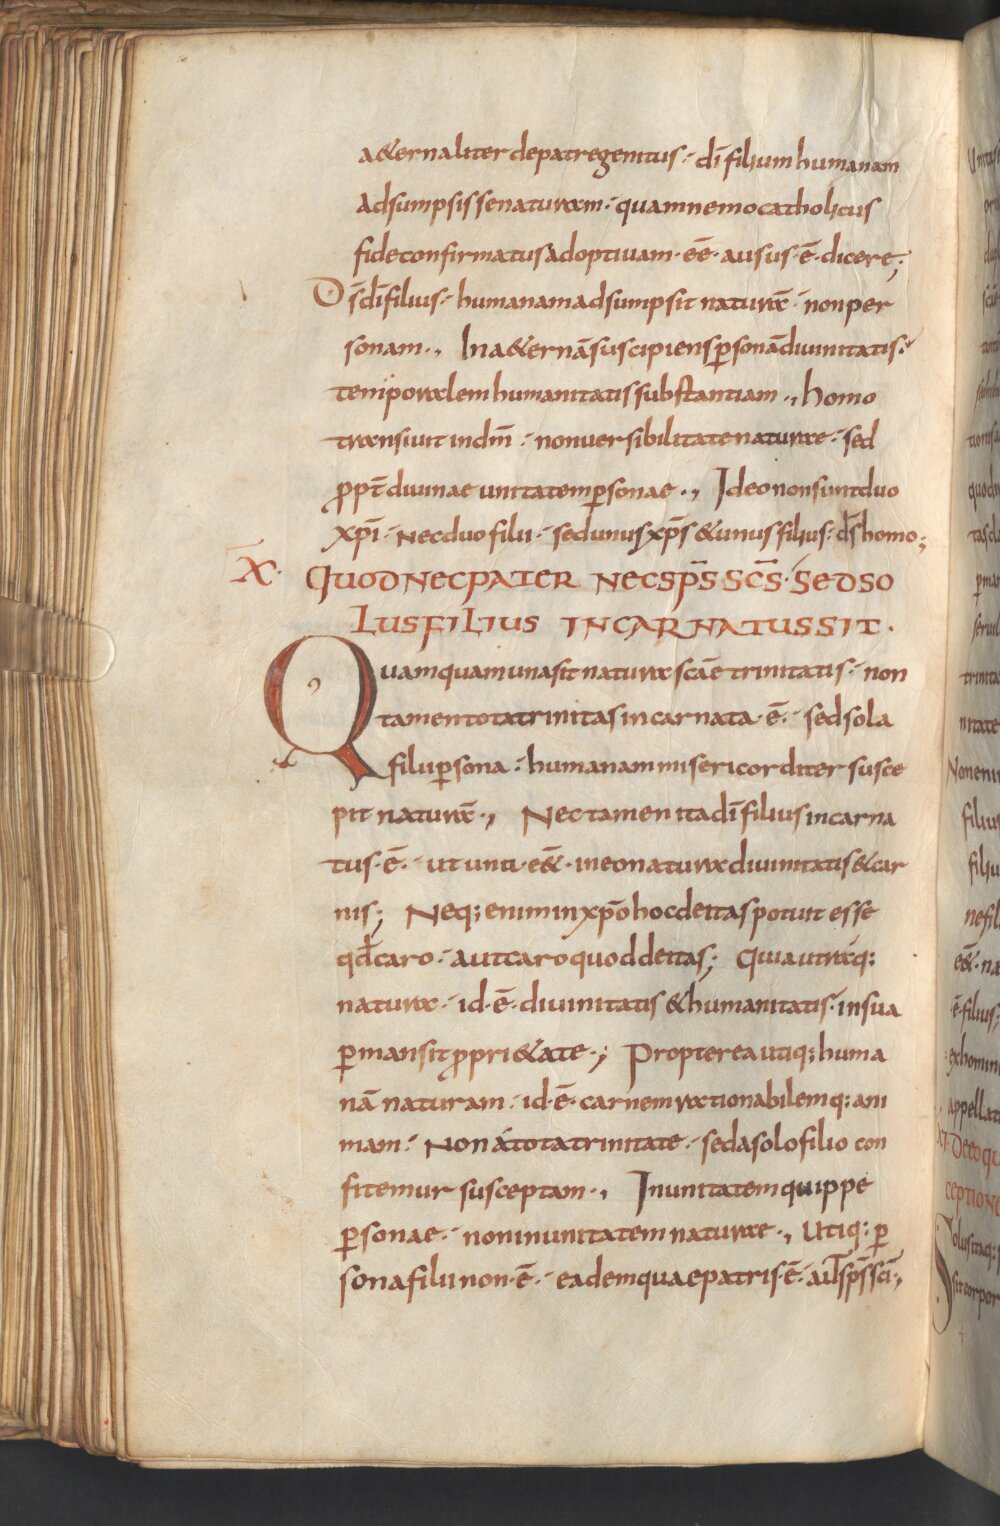 a&ernaliter depatregenitus · dī filium humanam
adsumpsisse naturam · quam nemo catholicus
fide confirmatus adoptiuam · eē · ausus · ē · dicere;
Ds dī filius · humanam adsumpsit naturā · non per
sonam ·, In a&ernā suscipiens ꝑsonā diuinitatis ·
temporalem humanitatis substantiam ·, homo
transiuit in dm̄ · non uersibilitate naturae · sed
ꝓpt̄ diuinae unitatem ꝑsonae ·, Ideo non sunt duo
xp̄i · nec duo filii · sed unus xp̄s & unus filius · d̄s homo;
X · QUOD NEC PATER NEC SP̄S SC̄S · SED SO
LUS FILIUS INCARNATUS SIT ·
Quamquam una sit natura scāe trinitatis · non
tamen tota trinitas incarnata · ē · sed sola
filii ꝑsona · humanam misericorditer susce
pit naturā ·, Nec tamen ita dī filius incarna
tus · ē · ut una · ēe& · in eo natura diuinitatis & car
nis; Neq; enim in xp̄o hoc deitas potuit esse
qd̄ caro · aut caro quod deitas; Quia utraq;
natura · id · ē · diuinitatis & humanitatis · in sua
ꝑmansit ꝓpri&ate ·; Propterea utiq; huma
nā naturam · id · ē · carnem rationabilemq; ani
mam · Non a tota trinitate · sed a solo filio con
fitemur susceptam ·, In unitatem quippe
ꝑsonae · non in unitatem naturae ·, Utiq; ꝑ
sona filii non · ē · eadem quae patris · ē · aut sp̄s sc̄i ·,